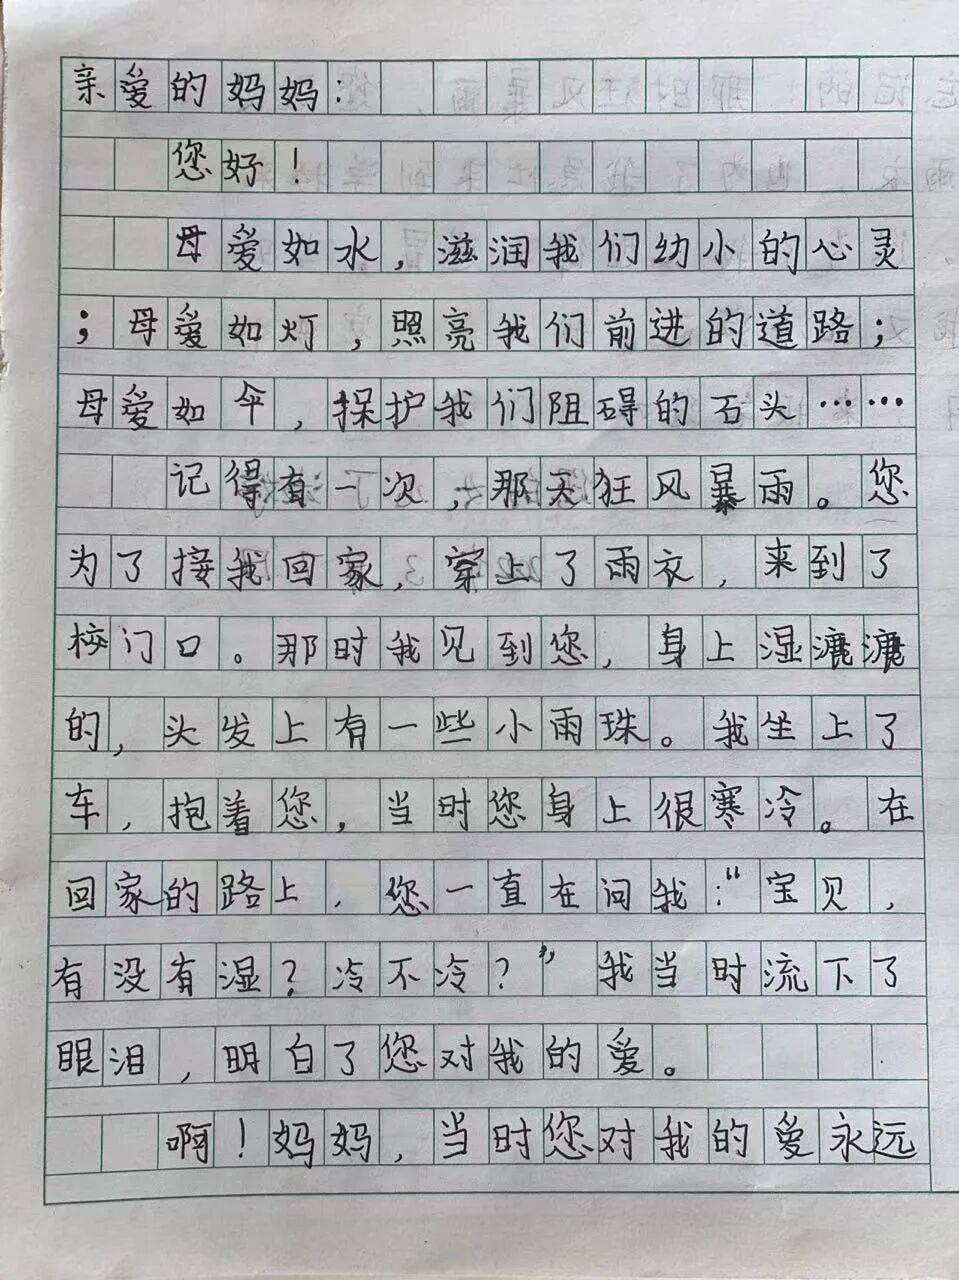 亲爱的妈妈：
您好！
母爱如水，滋润我们幼小的心灵
；母爱如灯，照亮我们前进的道路；
母爱如伞，探护我们阻碍的石头……
记得有一次，那天狂风暴雨。您
为了接我回家，穿上了雨衣，来到了
校门口。那时我见到您，身上湿漉漉
的，头发上有一些小雨珠。我坐上了
车，抱着您，当时您身上很寒冷。在
回家的路上，您一直在问我：“宝贝，
有没有湿？冷不冷？”我当时流下了
眼泪，明白了您对我的爱。
啊！妈妈，当时您对我的爱永远